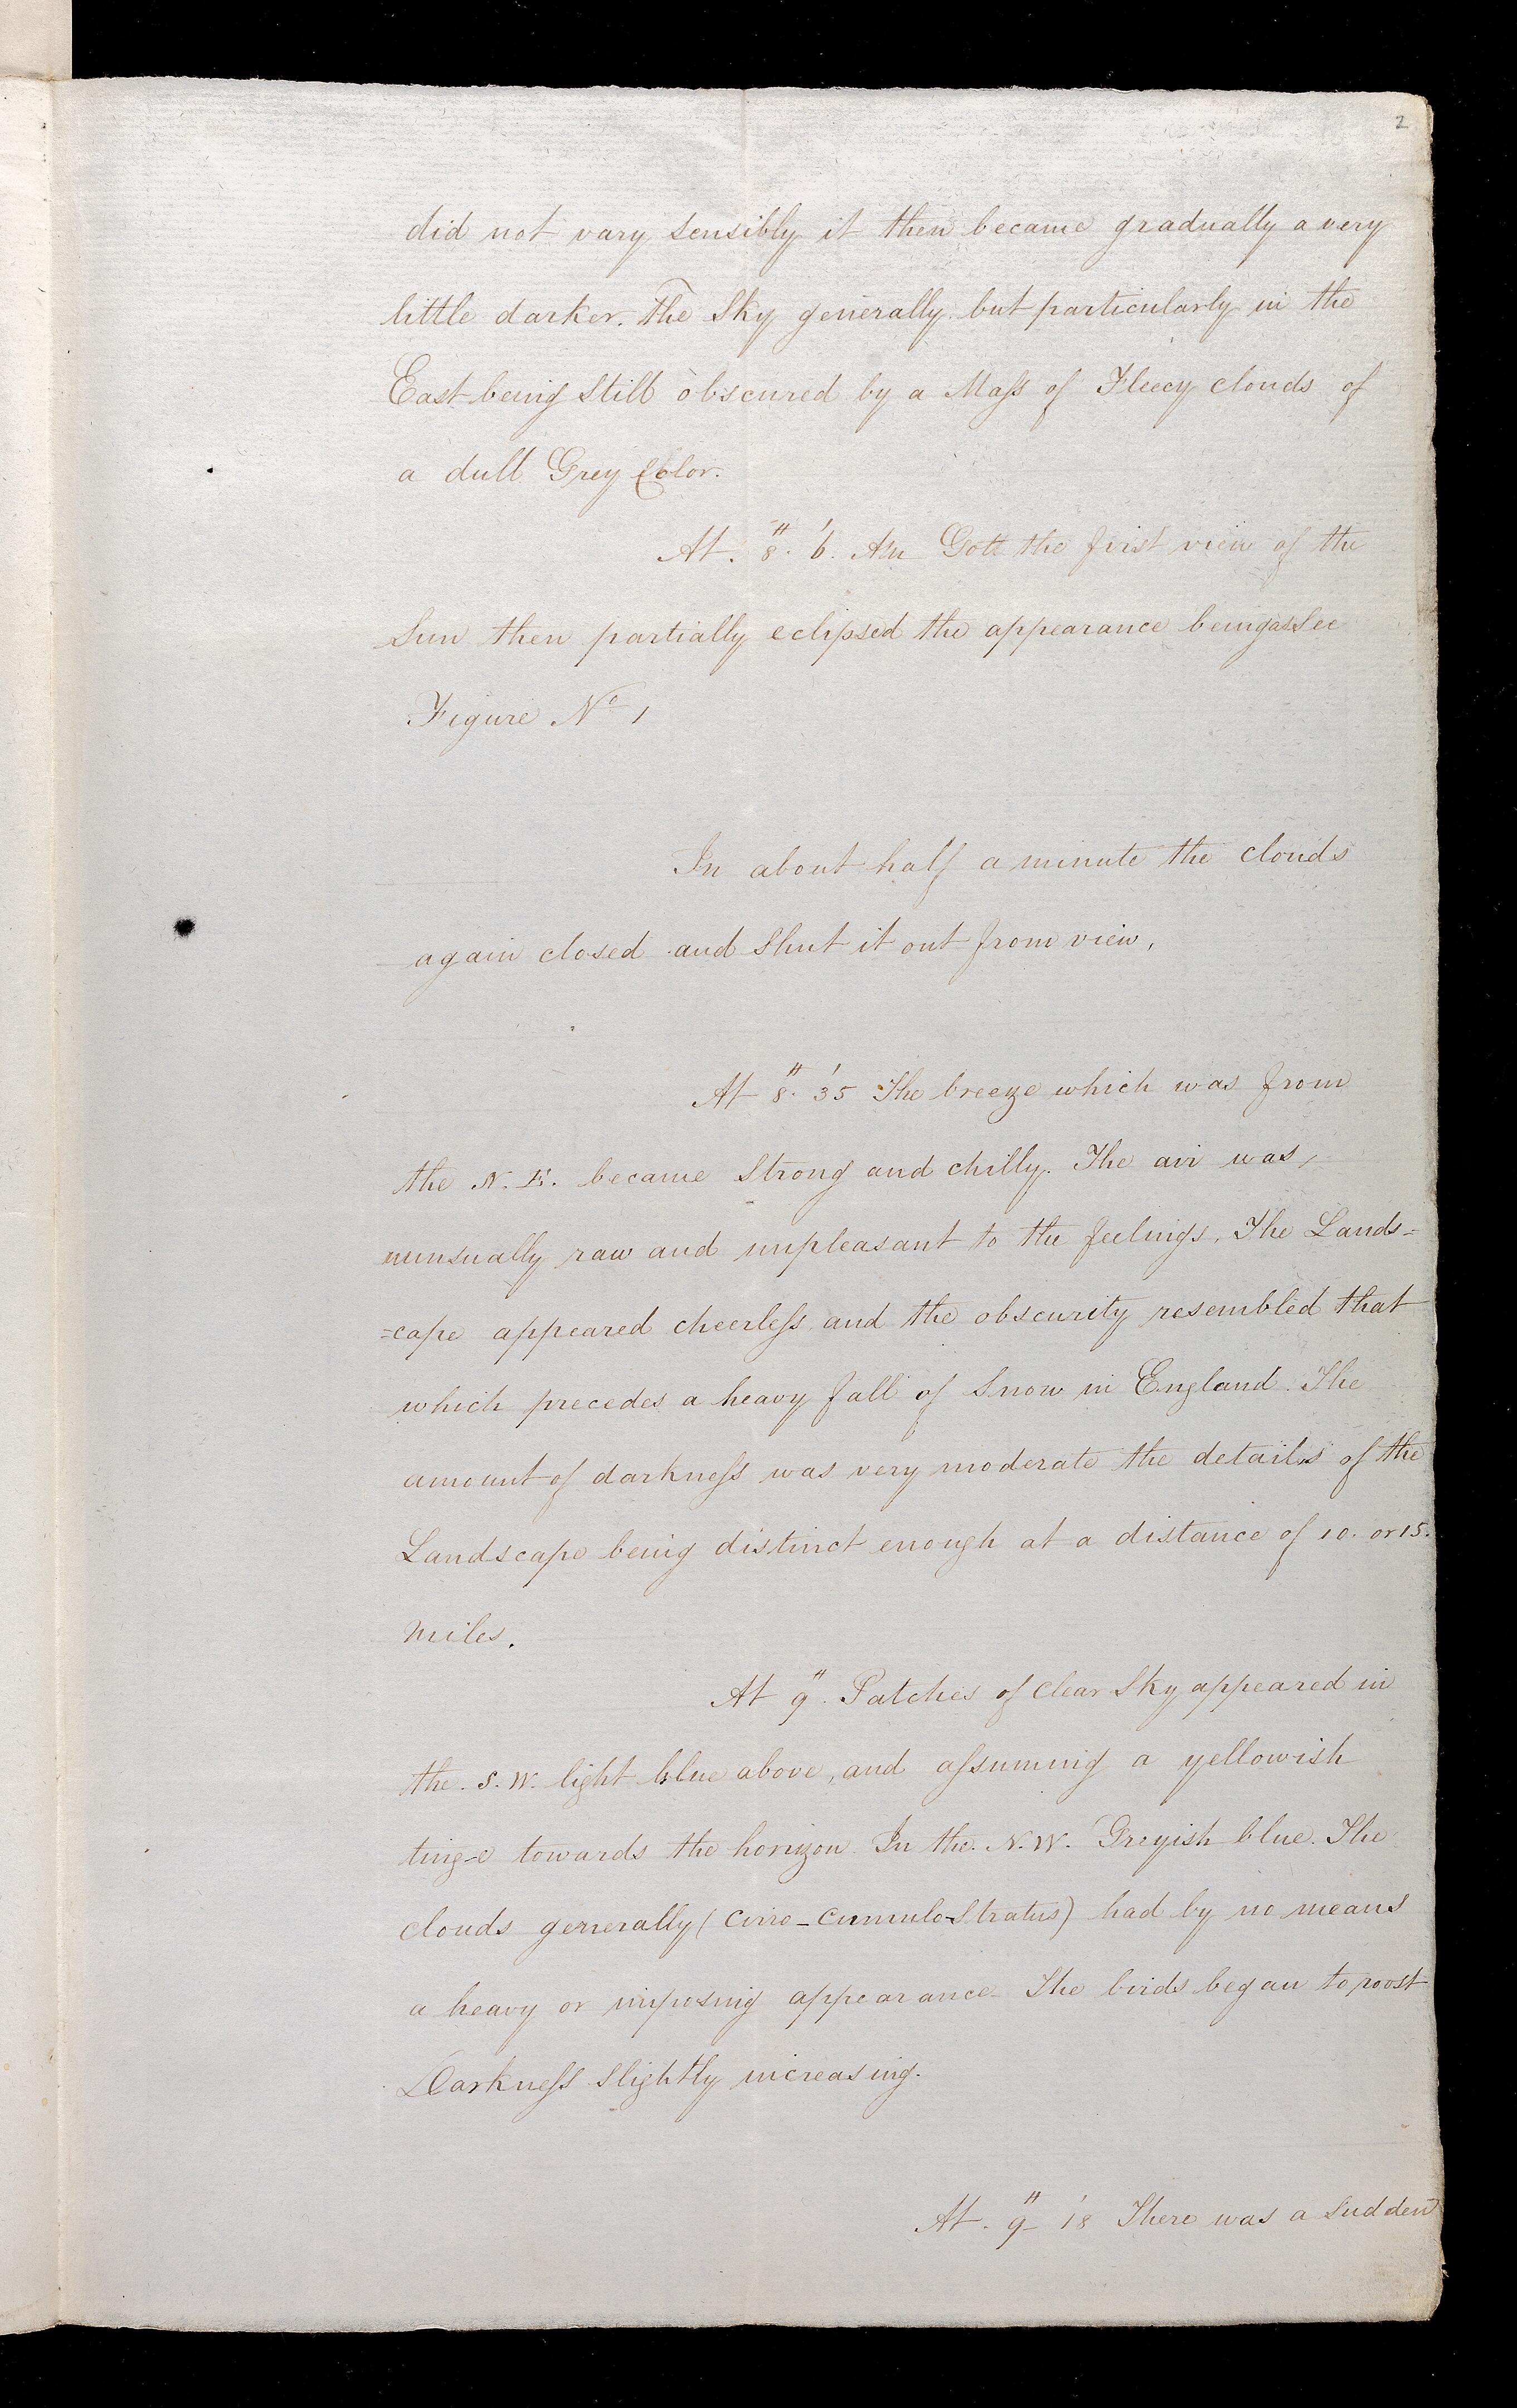 2
did not vary sensibly it then became gradually a very
little darker. The Sky generally but particularly in the
East being Still obscured by a Maſs of Fleecy clouds of
a dull Grey Color.
At. 8.ᴴ 6.' Am Gott the first view of the
Sun then partially eclipsed the appearance being as See
Figure Nº 1
In about half a minute the clouds
again closed and Shut it out from view,
At 8.ᴴ 35' The breeze which was from
the N. E. became Strong and chilly. The air was,
unusually raw and unpleasant to the feelings. The Lands=
=cape appeared cheerleſs and the obscurity resembled that
which precedes a heavy fall of Snow in England. The
amount of darkneſs was very moderate the details of the
Landscape being distinct enough at a distance of 10. or 15.
miles.
At 9ᴴ. Patches of Clear Sky appeared in
the. S. W. light blue above, and aſsuming a yellowish
ting-e towards the horizon. In the. N. W. Greyish blue. The
clouds generally (Cirro-Cumulo-Stratus) had by no means
a heavy or imposing appearance. The birds began to roost
Darkneſs Slightly increasing.
At. 9ᴴ 18' There was a Sudden